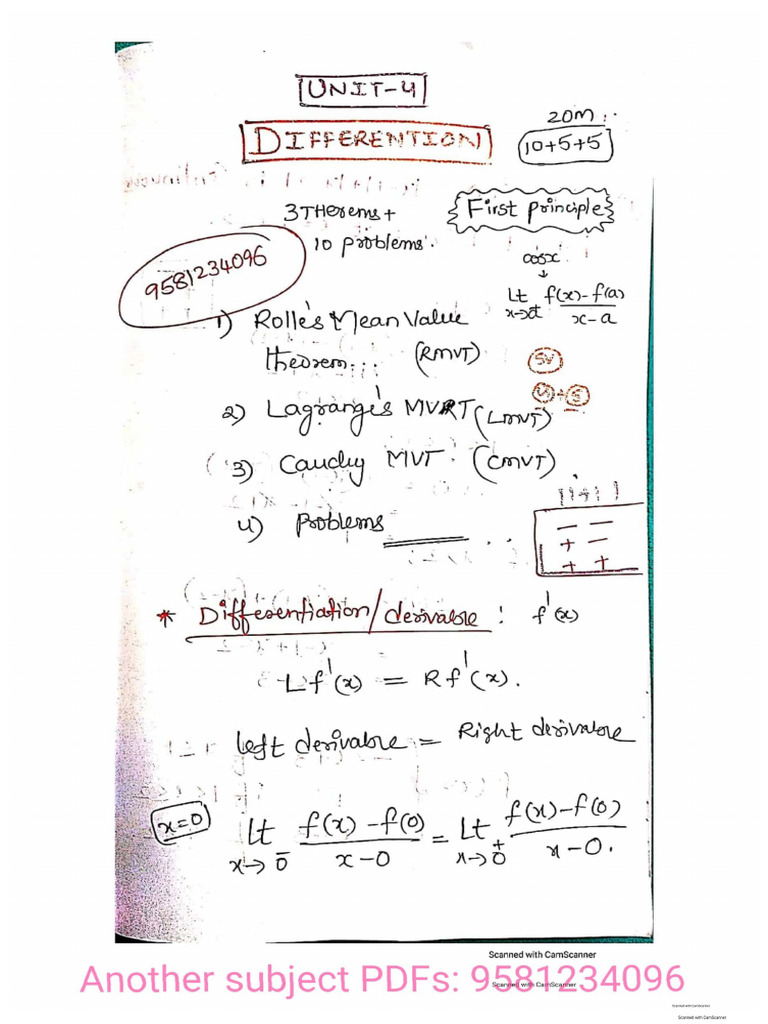 UNIT-4
DIFFERENTION
20M:
10+5+5
3 THeorems +
10 problems.
First principle
9581234096
cosx
Lt x→a f(x)-f(a) / x-a
1) Rolle's Mean Value
theorem... (RMVT)
2) Lagrange's MVT (LMVT)
3) Cauchy MVT. (CMVT)
4) Problems
— —
+ —
+ +
* Differentiation/derivable : f'(x)
Lf'(x) = Rf'(x).
left derivable = Right derivable
x=0
Lt x→0⁻ f(x)-f(0) / x-0 = Lt x→0⁺ f(x)-f(0) / x-0.
Scanned with CamScanner
Another subject PDFs: 9581234096
Scanned with CamScanner
Scanned with CamScanner
Scanned with CamScanner